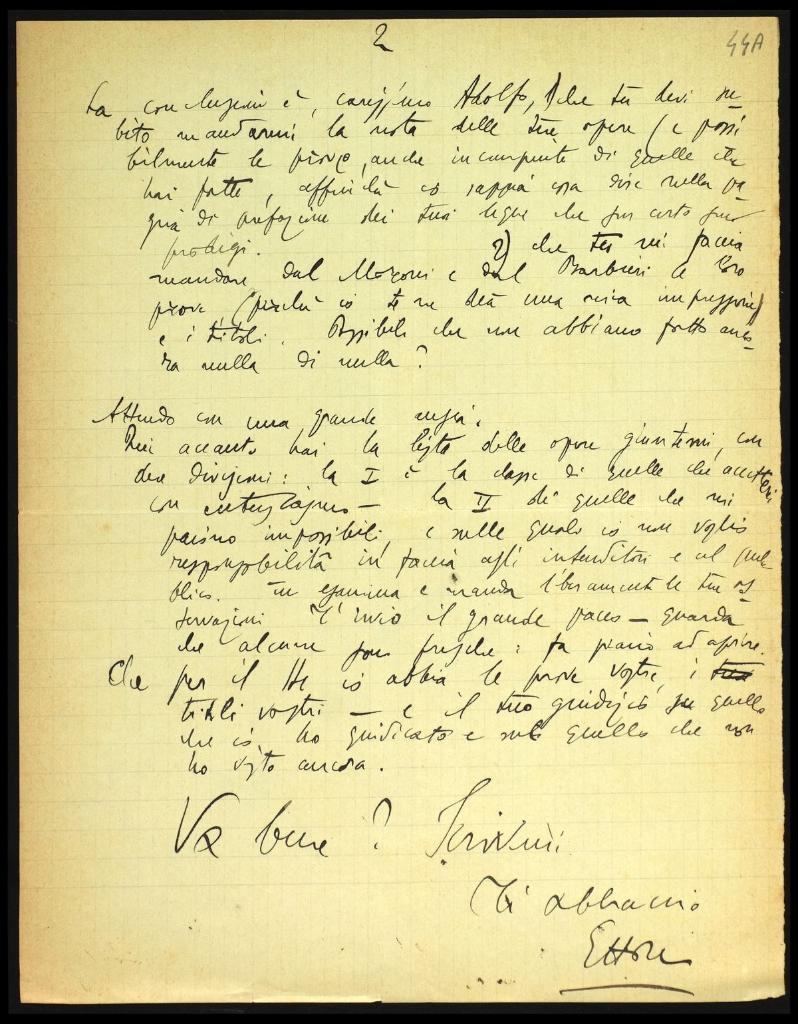 2
44A
La conclusione è, carissimo Adolfo, 1) che tu devi su-
bito mandarmi la nota delle tue opere (e possi
bilmente le prove, anche incompiute di quelle che
hai fatte, affinché io sappia cosa dire nella pa-
gina di prefazione dei tuoi legni che son certo son
prodigi. 2) che tu mi faccia
mandare dal Moroni e dal Barbieri le loro
prove (perché io te ne dia una mia impressione)
e i titoli. Possibile che non abbiano fatto anco-
ra nulla di nulla?
Attendo con una grande ansia.
Qui accanto hai la lista delle opere giuntemi, con
due divisioni: la I è la classe di quelle che accetterei
con entusiasmo — la II di quelle che mi
paiono impossibili, e sulle quali io non voglio
responsabilità in faccia agli intenditori e al pub-
blico. Tu esamina e manda liberamente le tue os-
servazioni. T'invio il grande pacco — guarda
che alcune son fresche: fa piano ad aprire.
Che per il io abbia le prove vostre, i
titoli vostri — e il tuo giudizio su quello
che io ho giudicato e su quello che non
ho visto ancora.
Va bene? Scrivimi
Ti abbraccio
Ettore